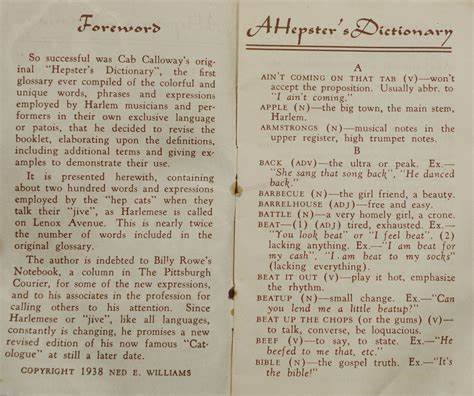 Foreword
So successful was Cab Calloway's original
"Hepster's Dictionary", the first
glossary ever compiled of the colorful and
unique words, phrases and expressions
employed by Harlem musicians and performers
in their own exclusive language
or patois, that he decided to revise the
booklet, elaborating upon the definitions,
including additional terms and giving examples
to demonstrate their use.
It is presented herewith, containing
about two hundred words and expressions
employed by the "hep cats" when they
talk their "jive", as Harlemese is called
on Lenox Avenue. This is nearly twice
the number of words included in the
original glossary.
The author is indebted to Billy Rowe's
Notebook, a column in The Pittsburgh
Courier, for some of the new expressions,
and to his associates in the profession for
calling others to his attention. Since
Harlemese or "jive", like all languages,
constantly is changing, he promises a new
revised edition of his now famous "Cat-
ologue" at still a later date.
COPYRIGHT 1938 NED E. WILLIAMS
A Hepster's Dictionary
A
AIN'T COMING ON THAT TAB (V)—won't
accept the proposition. Usually abbr. to
"I ain't coming."
APPLE (N)—the big town, the main stem,
Harlem.
ARMSTRONGS (N)—musical notes in the
upper register, high trumpet notes.
B
BACK (ADV)—the ultra or peak. Ex.—
"She sang that song back", "He danced
back."
BARBECUE (N)—the girl friend, a beauty.
BARRELHOUSE (ADJ)—free and easy.
BATTLE (N)—a very homely girl, a crone.
BEAT—(1) (ADJ) tired, exhausted. Ex.—
"You look beat" or "I feel beat". (2)
lacking anything. Ex.—"I am beat for
my cash". "I am beat to my socks"
(lacking everything).
BEAT IT OUT (V)—play it hot, emphasize
the rhythm.
BEATUP (N)—small change. Ex.—"Can
you lend me a little beatup?"
BEAT UP THE CHOPS (or the gums) (V)—
to talk, converse, be loquacious.
BEEF (V)—to say, to state. Ex.—"He
beefed to me that, etc."
BIBLE (N)—the gospel truth. Ex.—"It's
the bible!"